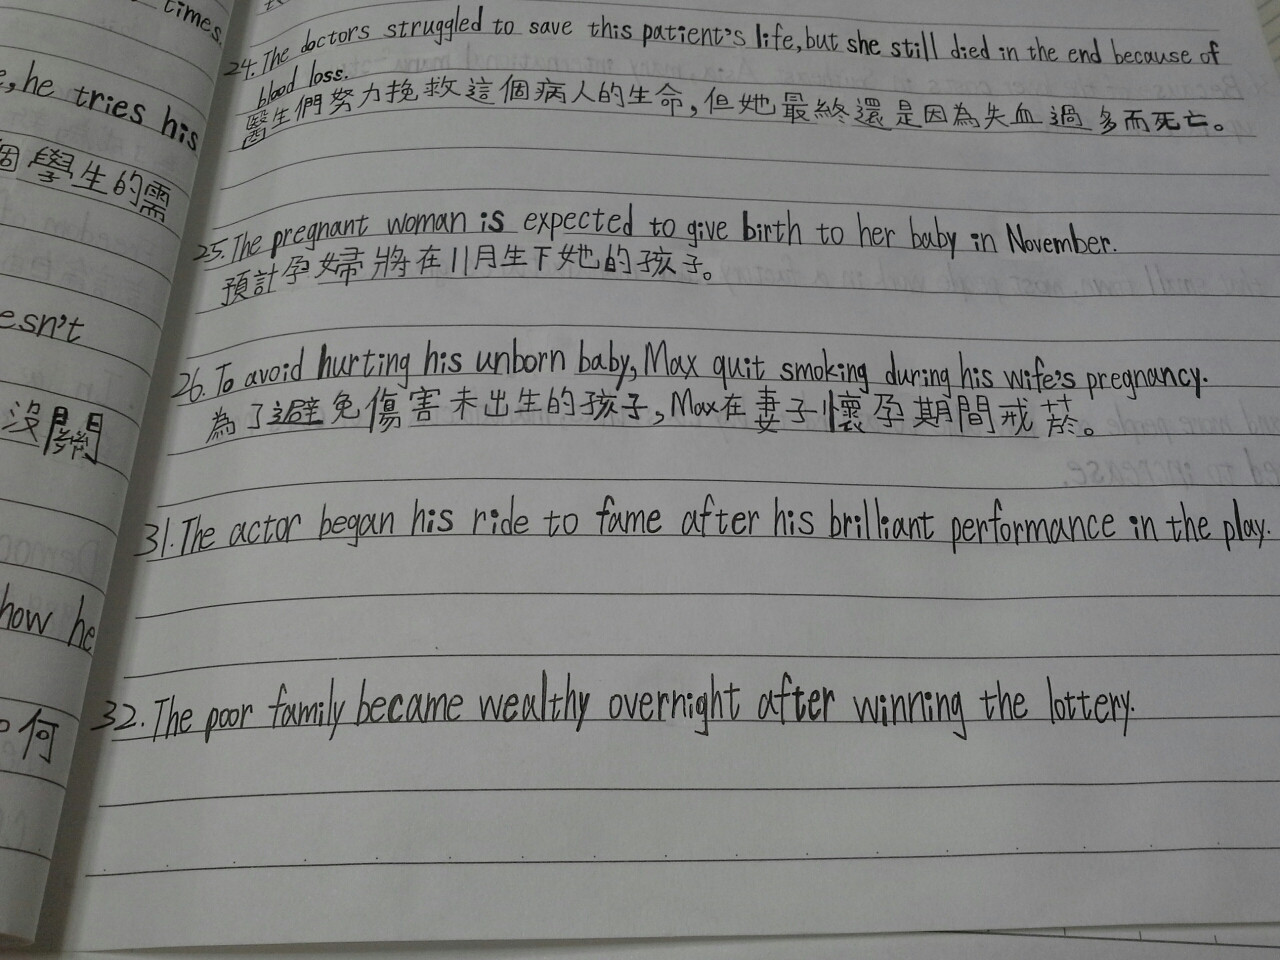 times.
, he tries his
個學生的需
esn't
沒關
how he
何
24. The doctors struggled to save this patient's life, but she still died in the end because of
blood loss.
醫生們努力挽救這個病人的生命,但她最終還是因為失血過多而死亡。
25. The pregnant woman is expected to give birth to her baby in November.
預計孕婦將在11月生下她的孩子。
26. To avoid hurting his unborn baby, Max quit smoking during his wife's pregnancy.
為了避免傷害未出生的孩子,Max在妻子懷孕期間戒菸。
31. The actor began his ride to fame after his brilliant performance in the play.
32. The poor family became wealthy overnight after winning the lottery.